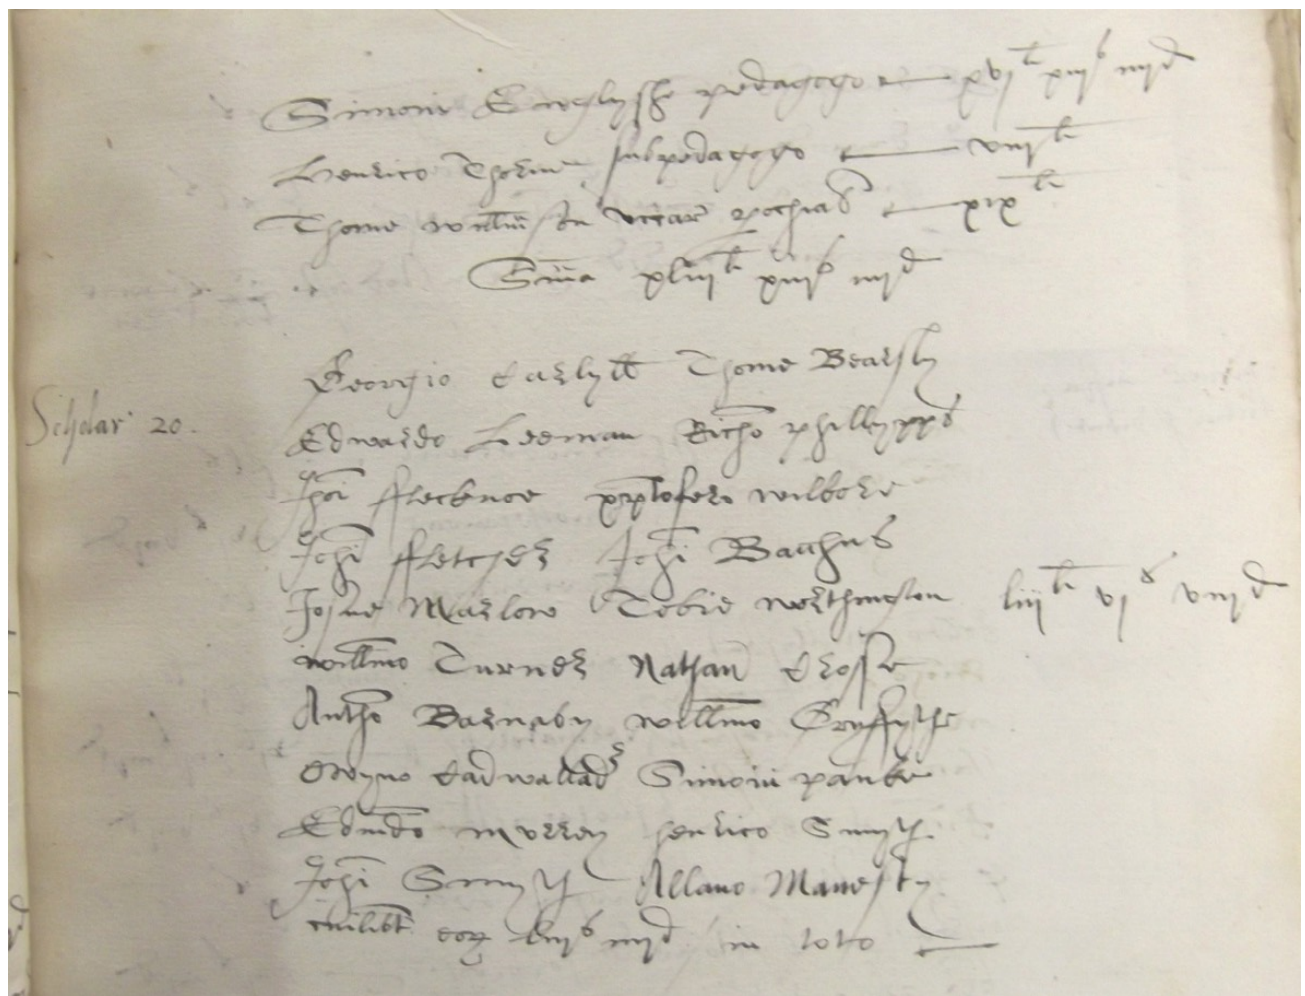 Simoni Englyshe pedagogo xvjli xiijs iiijd
Henrico Thorne subpedagogo viijli
Thome willmson vccar pochias xixli
Sma xliijli xiijs iiijd
Georgio Carlyll Thome Bearsly
Scholar 20. Edwardo Leeman Richo phillypps
Johi fflecknoe xpofero wilbore
Johi ffletcher Johi Bacchus
Josue Marlow Tobie worthington liijli vjs viijd
willmo Turner Nathan Crosse
Antho Barnaby willmo Gryffythe
Owyno Cadwallader Simoni panke
Edmdo Murrey henrico Smyth
Johi Smyth Allano Manesty
cuilibt eor liijs iiijd in toto